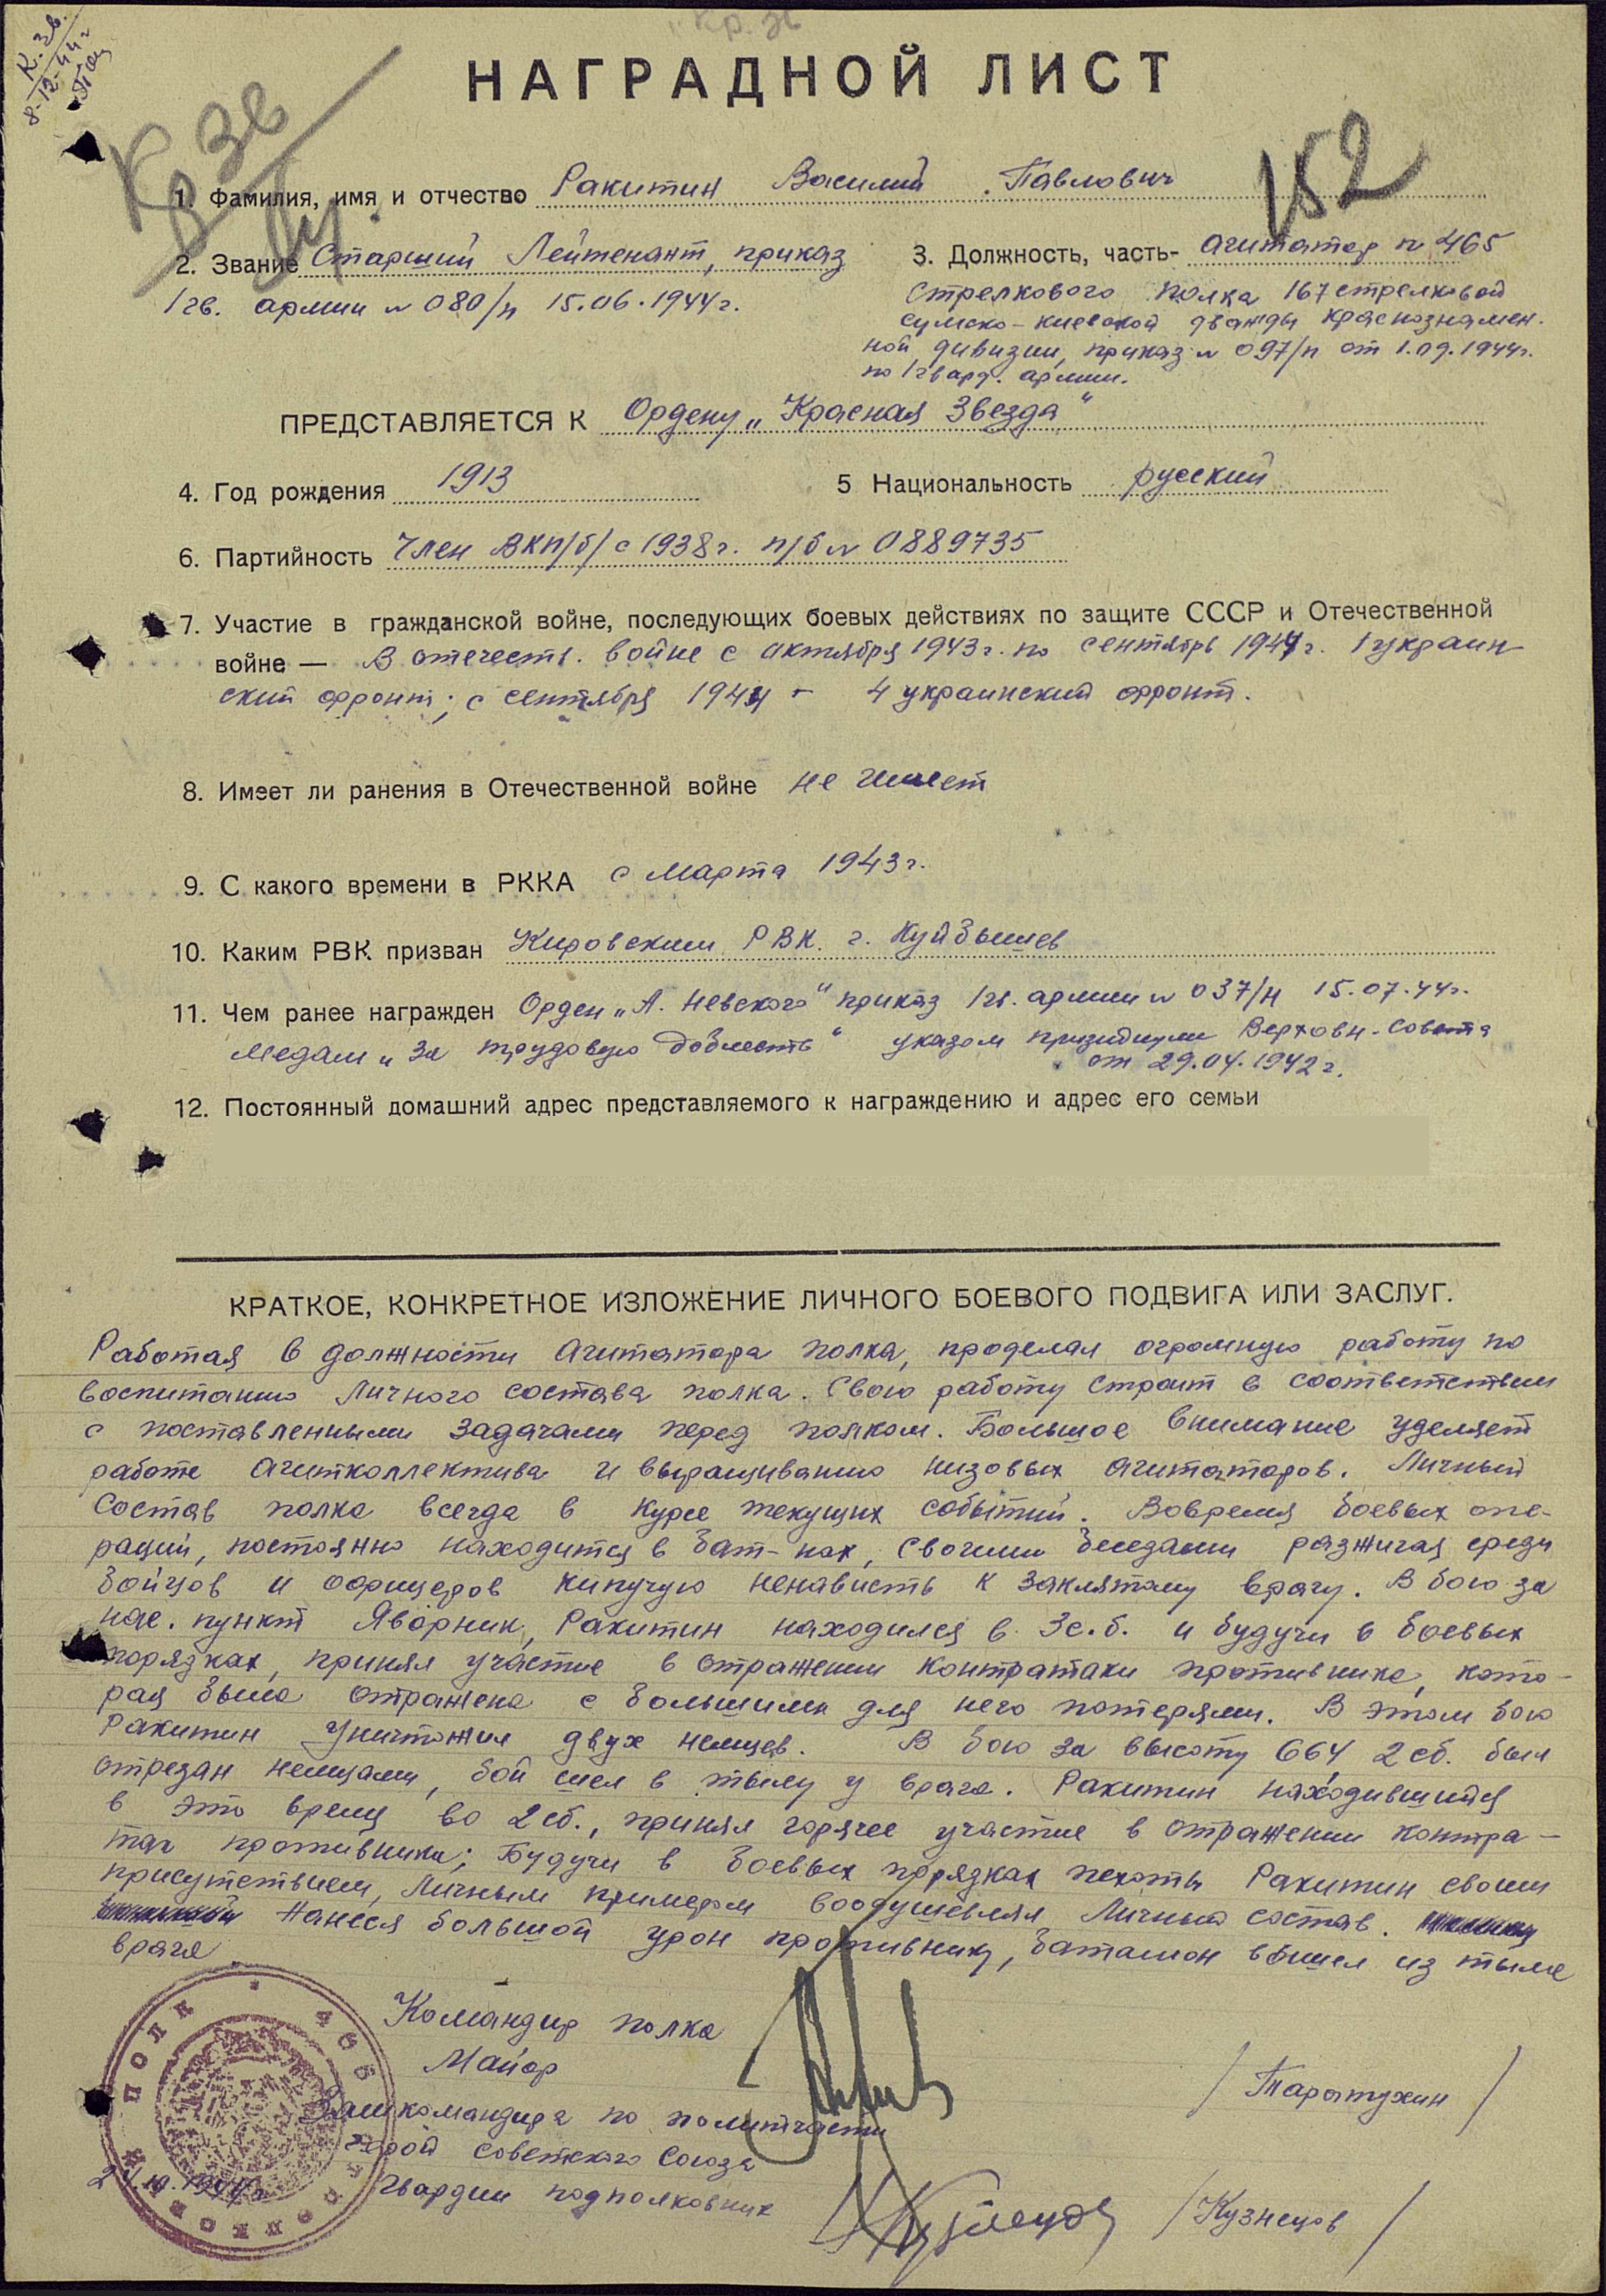 Кр. Зв.
К. Зв.
8-12-44 г
НАГРАДНОЙ ЛИСТ
Кр Зв
152
1. Фамилия, имя и отчество Ракитин Василий Павлович
2. Звание Старший Лейтенант, приказ
1 гв. армии № 080/н 15.06.1944г.
3. Должность, часть- Агитатор № 465
стрелкового полка 167 стрелковой
Сумско-Киевской дважды Краснознамен-
ной дивизии, приказ № 097/н от 1.09.1944г.
по 1 гвард. армии.
ПРЕДСТАВЛЯЕТСЯ К Ордену „Красная Звезда“
4. Год рождения 1913
5 Национальность русский
6. Партийность Член ВКП/б/ с 1938г. п/б № 0889735
7. Участие в гражданской войне, последующих боевых действиях по защите СССР и Отечественной
войне — В отечеств. войне с октября 1943г. по сентябрь 1944г. 1 украин-
ский фронт; с сентября 1944 - 4 украинский фронт.
8. Имеет ли ранения в Отечественной войне не имеет
9. С какого времени в РККА с Марта 1943г.
10. Каким РВК призван Кировским РВК г. Куйбышев
11. Чем ранее награжден Орден „А. Невского“ приказ 1 гв. армии № 037/н 15.07.44г.
Медали „За трудовую доблесть“ указом призидиума Верховн. Совета
от 29.04.1942г.
12. Постоянный домашний адрес представляемого к награждению и адрес его семьи
КРАТКОЕ, КОНКРЕТНОЕ ИЗЛОЖЕНИЕ ЛИЧНОГО БОЕВОГО ПОДВИГА ИЛИ ЗАСЛУГ.
Работая в должности Агитатора полка, проделал огромную работу по
воспитанию Личного состава полка. Свою работу строит в соответствии
с поставленными задачами перед полком. Большое внимание уделяет
работе агитколлектива и выращиванию низовых агитаторов. Личный
Состав полка всегда в курсе текущих событий. Вовремя боевых опе-
раций, постоянно находится в бат-нах, своими беседами разжигая среди
бойцов и офицеров кипучую ненависть к заклятому врагу. В бою за
нас. пункт Яворник, Ракитин находился в 3с.б. и будучи в боевых
порядках, принял участие в отражении контратаки противника, кото-
рая была отражена с большими для него потерями. В этом бою
Ракитин уничтожил двух немцев. В бою за высоту 664 2сб. был
отрезан немцами, бой шел в тылу у врага. Ракитин находившийся
в это время во 2сб., принял горячее участие в отражении контра-
так противника; Будучи в боевых порядках пехоты Ракитин своим
присутствием, Личным примером воодушевлял Личный состав.
Нанеся большой урон противнику, батальон вышел из тыла
врага
Командир полка
Майор
/ Тарытухин /
Зам командира по политчасти
Герой Советского Союза
Гвардии подполковник
/ Кузнецов /
24.10.1944г.
465 СТРЕЛКОВЫЙ ПОЛК